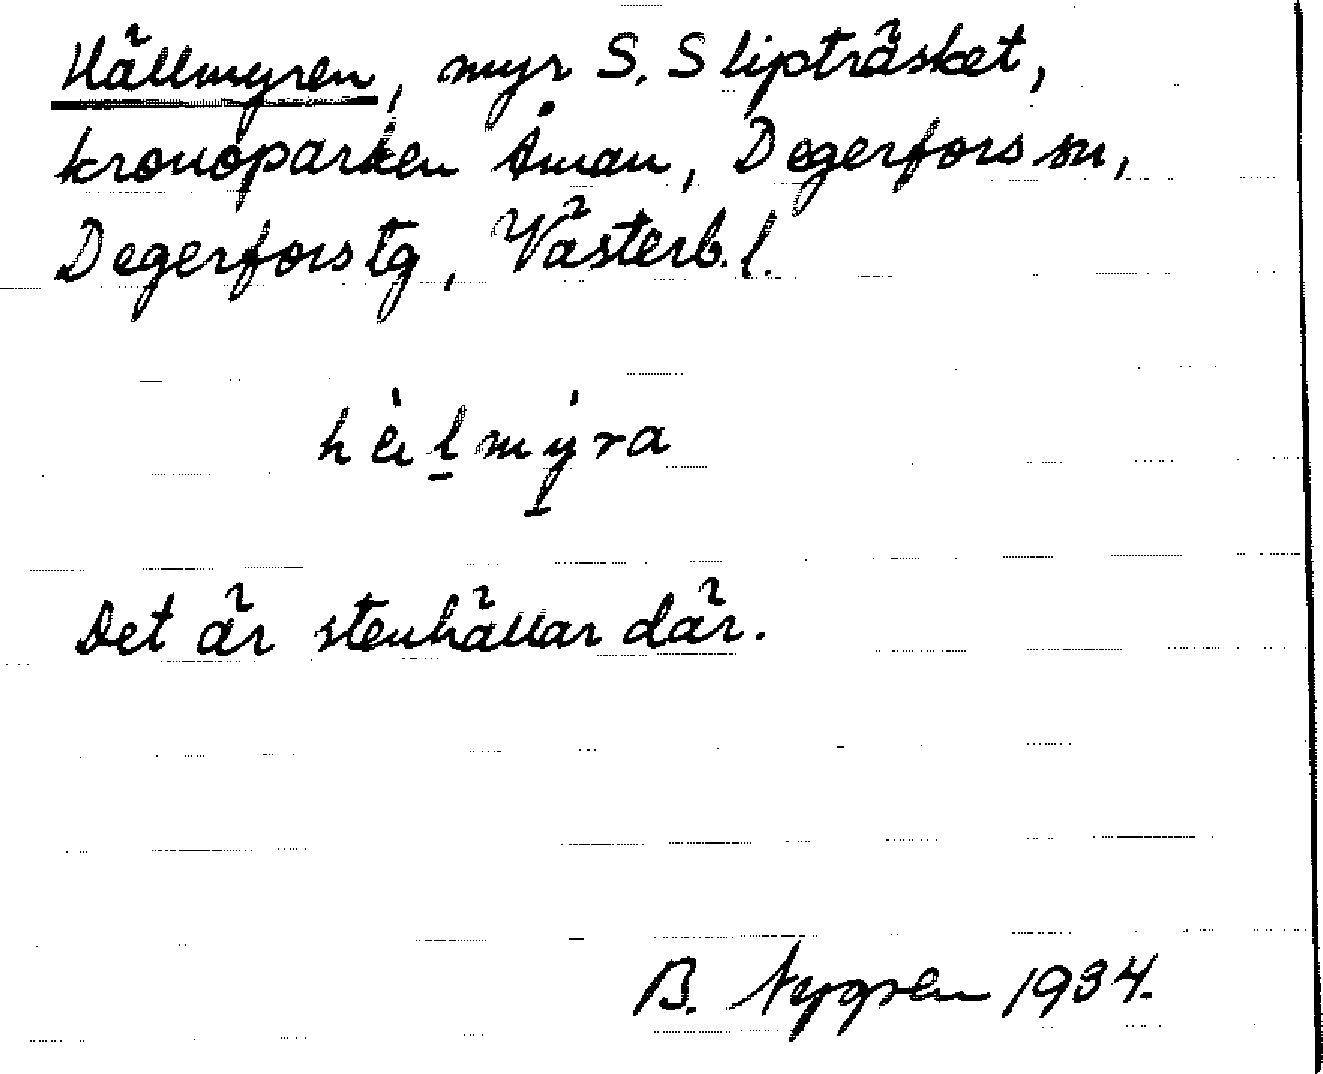 Hällmyren, myr S. Slipträsket,
kronoparken Åman, Degerfors sn,
Degerfors tg, Västerb. l.
hèl̠mýra
Det är stenhällar där.
B. Nygren 1934.